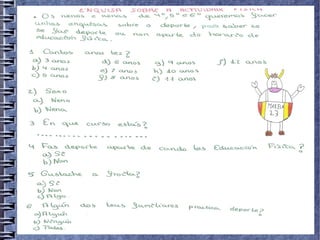 ENQUISA SOBRE A ACTIVIDADE FÍSICA
• Os nenos e nenas de 4º, 5º e 6º queremos facer
unhas enquisas sobre o deporte, para saber se
se fai deporte ou non aparte do horario de
educación física.
1 Cantos anos tes?
a) 3 anos d) 6 anos g) 9 anos j) 12 anos
b) 4 anos e) 7 anos h) 10 anos
c) 5 anos f) 8 anos i) 11 anos
2) Sexo
a) Neno
b) Nena
3 En que curso estás?
4 Fas deporte aparte de cando tes Educación Física?
a) Si
b) Non
5 Gustache a froita?
a) Si
b) Non
c) Algo
6 Algún dos teus familiares practica deporte?
a) Algún
b) Ningún
c) Todos